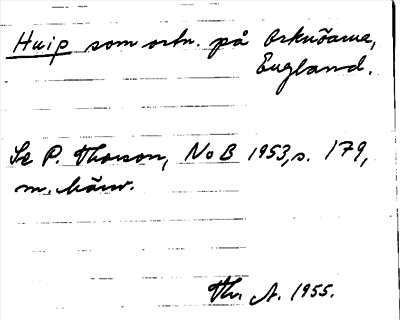 Huip som ortn. på Orknöarna,
England.
Se P. Thorson, NoB 1953, s. 179,
m. hänv.
Thr A. 1955.